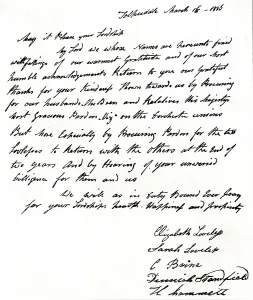 Tolpuddle March 16 - 1836
May it Please your Lordship
My Lord we whose Names are hereunto fixed
with feelings of our warmest Gratitude and of our most
humble acknowledgements Return to you our Gratful
thanks for your kindness towards us by Procuring
for our husbands and Relatives his Majestys
most Gracious Pardon
But more Especially by Procuring Pardon for the two
Lovelesses to Return with the others at the End of
two years And by Hearing of your unwearied
Dilligence for them and us
We will as in Duty Bound Ever Pray
for your Lordships health Happiness and prosperity
Elizabeth Loveless
Sarah Loveless
E Brine
Standfield
H Hammett